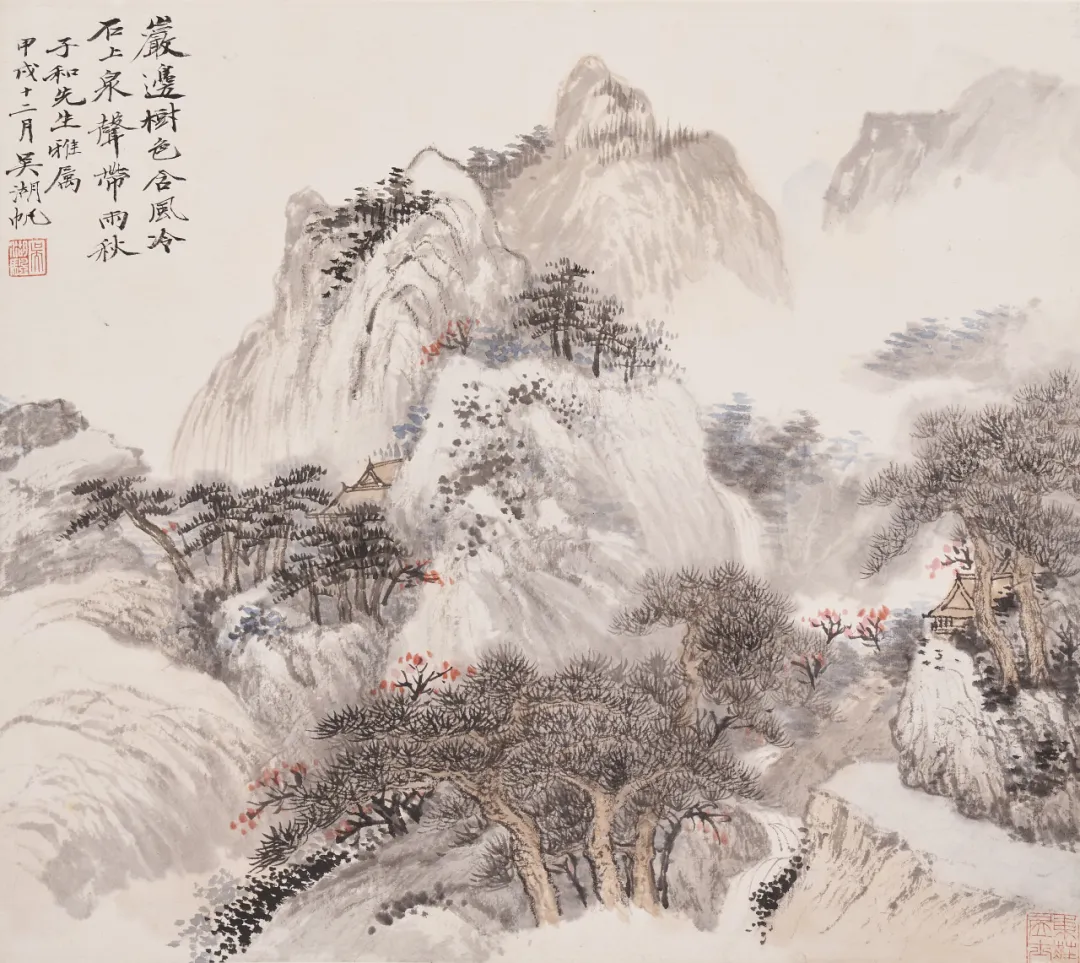 巖邊樹色含風冷
石上泉聲帶雨秋
子和先生雅属
甲戌十二月吳湖帆